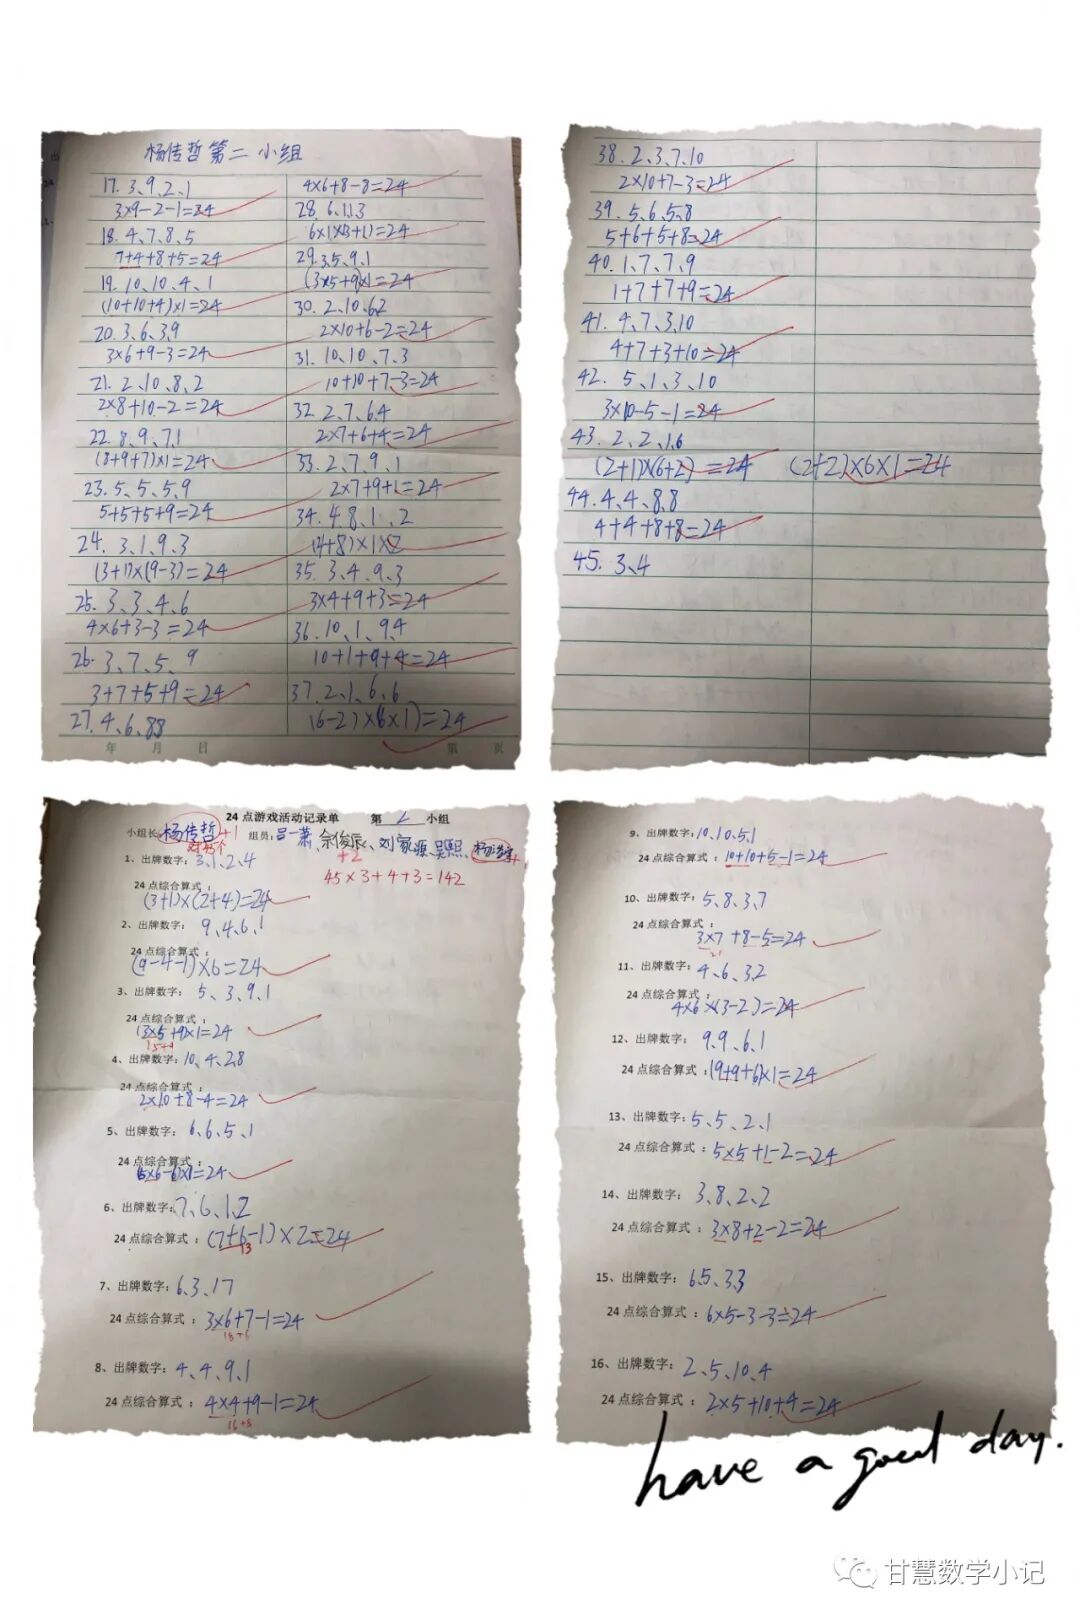 杨传哲第二小组
17. 3、9、2、1
3×9-2-1=24
18. 4、7、8、5
7+4+8+5=24
19. 10、10、4、1
(10+10+4)×1=24
20. 3、6、3、9
3×6+9-3=24
21. 2、10、8、2
2×8+10-2=24
22. 8、9、7、1
(8+9+7)×1=24
23. 5、5、5、9
5+5+5+9=24
24. 3、1、9、3
(3+1)×(9-3)=24
25. 3、3、4、6
4×6+3-3=24
26. 3、7、5、9
3+7+5+9=24
27. 4、6、8、8
年 月 日
4×6+8-8=24
28. 6、1、1、3
6×1×(3+1)=24
29. 3、5、9、1
(3×5+9)×1=24
30. 2、10、6、2
2×10+6-2=24
31. 10、10、7、3
10+10+7-3=24
32. 2、7、6、4
2×7+6+4=24
33. 2、7、9、1
2×7+9+1=24
34. 4、8、1、2
(4+8)×1×2
35. 3、4、9、3
3×4+9+3=24
36. 10、1、9、4
10+1+9+4=24
37. 2、1、6、6
(6-2)×(6×1)=24
第 页
38. 2、3、7、10
2×10+7-3=24
39. 5、6、5、8
5+6+5+8=24
40. 1、7、7、9
1+7+7+9=24
41. 4、7、3、10
4+7+3+10=24
42. 5、1、3、10
3×10-5-1=24
43. 2、2、1、6
(2+1)×(6+2)=24 (2+2)×6×1=24
44. 4、4、8、8
4+4+8+8=24
45. 3、4
24点游戏活动记录单 第 2 小组
小组长:杨传哲 +1 组员:吕一萧、佘俊辰、刘家源、吴熙、
+2
45×3+4+3=142
1、出牌数字:3、1、2、4
24点综合算式:
(3+1)×(2+4)=24
2、出牌数字:9、4、6、1
24点综合算式:
(9-4-1)×6=24
3、出牌数字:5、3、9、1
24点综合算式:
(3×5+9)×1=24
15+9
4、出牌数字:10、4、2、8
24点综合算式:
2×10+8-4=24
5、出牌数字:6、6、5、1
24点综合算式:
(5×6-6)×1=24
6、出牌数字:7、6、1、2
24点综合算式:(7+6-1)×2=24
13
7、出牌数字:6、3、1、7
24点综合算式:3×6+7-1=24
18+6
8、出牌数字:4、4、9、1
24点综合算式:4×4+9-1=24
16+8
9、出牌数字:10、10、5、1
24点综合算式:10+10+5-1=24
10、出牌数字:5、8、3、7
24点综合算式:
3×7+8-5=24
21
11、出牌数字:4、6、3、2
24点综合算式:
4×6×(3-2)=24
12、出牌数字:9、9、6、1
24点综合算式:(9+9+6)×1=24
13、出牌数字:5、5、2、1
24点综合算式:5×5+1-2=24
14、出牌数字:3、8、2、2
24点综合算式:3×8+2-2=24
15、出牌数字:6、5、3、3
24点综合算式:6×5-3-3=24
16、出牌数字:2、5、10、4
24点综合算式:2×5+10+4=24
have a good day.
甘慧数学小记